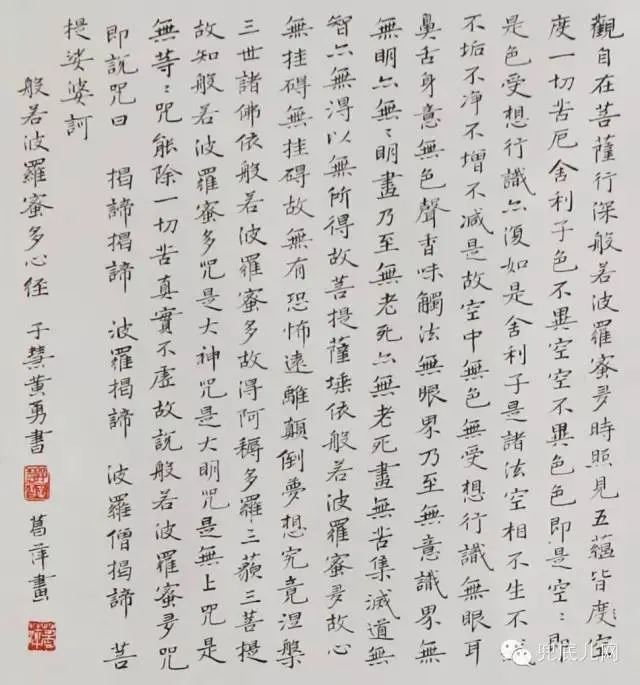 觀自在菩薩行深般若波羅蜜多時照見五蘊皆度空
度一切苦厄舍利子色不異空空不異色色即是空〻即
是色受想行識亦復如是舍利子是諸法空相不生不滅
不垢不净不增不减是故空中無色無受想行識無眼耳
鼻舌身意無色聲香味觸法無眼界乃至無意識界無
無明亦無〻明盡乃至無老死亦無老死盡無苦集滅道無
智亦無得以無所得故菩提薩埵依般若波羅蜜多故心
無挂碍無挂碍故無有恐怖遠離顛倒夢想究竟涅槃
三世諸佛依般若波羅蜜多故得阿耨多羅三藐三菩提
故知般若波羅蜜多咒是大神咒是大明咒是無上咒是
無等〻咒能除一切苦真實不虛故説般若波羅蜜多咒
即説咒曰 揭諦揭諦 波羅揭諦 波羅僧揭諦 菩
提娑婆訶
般若波羅蜜多心経 子慧黄勇書 葛萍畫
兜底儿网